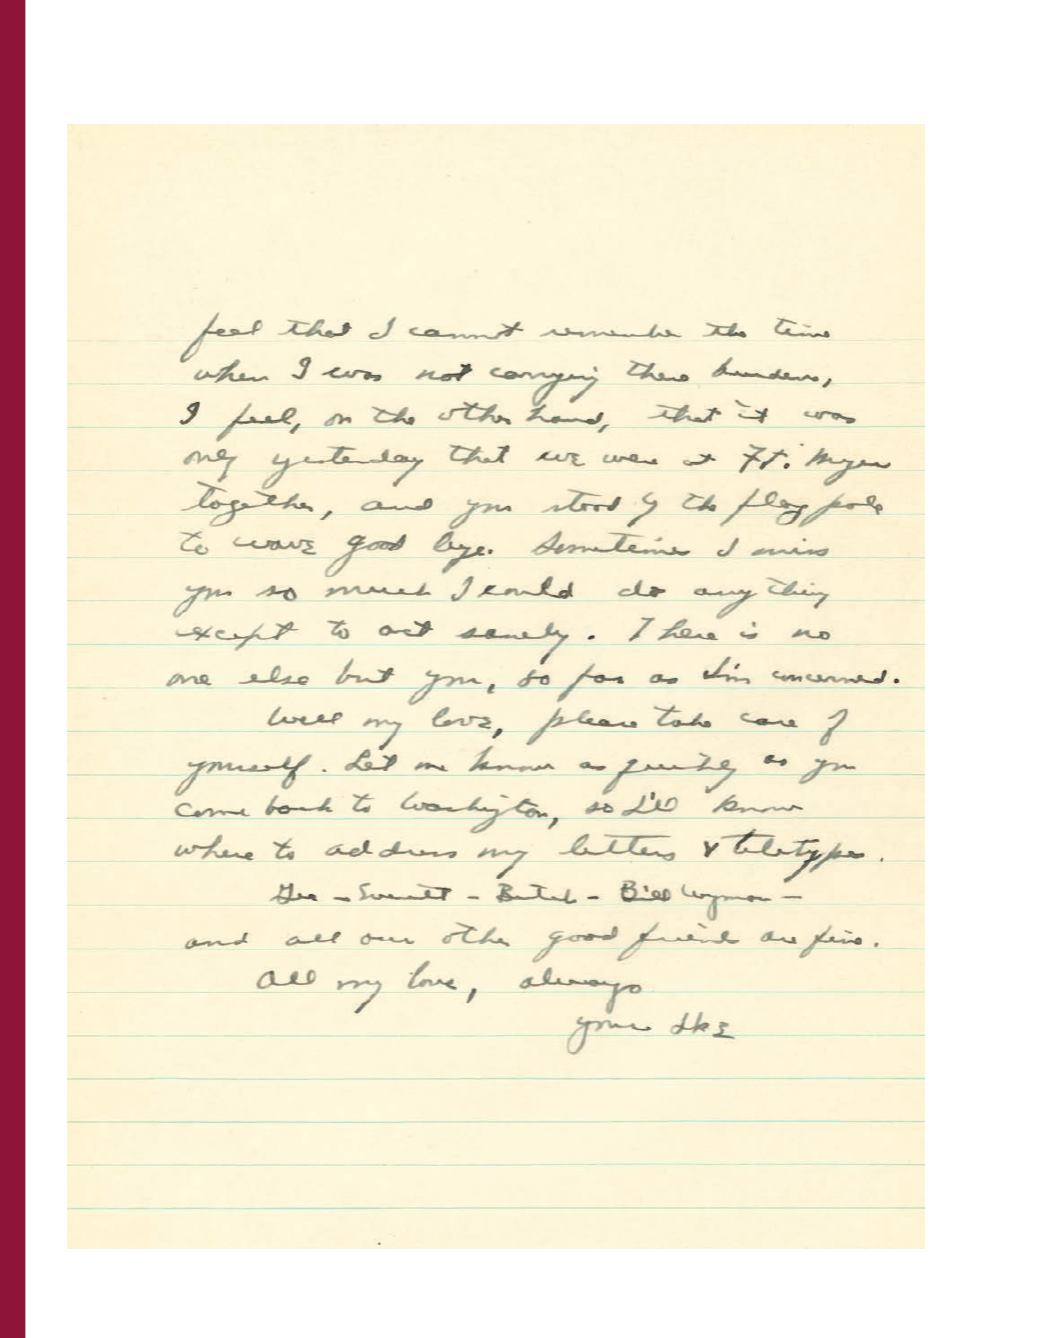 feel that I cannot remember the time
when I was not carrying these burdens,
I feel, on the other hand, that it was
only yesterday that we were at Ft. Myer
together, and you stood by the flag pole
to wave good bye. Sometimes I miss
you so much I could do anything
except to act sanely. There is no
one else but you, so far as I'm concerned.
Well my love, please take care of
yourself. Let me know as quickly as you
come back to Washington, so I'll know
where to address my letters & teletypes.
Gee - Everett - Butch - Bill Wyman -
and all our other good friends are fine.
All my love, always
your Ike